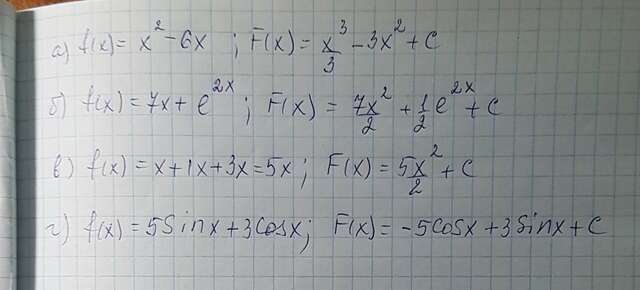 а) f(x) = x² - 6x ; F(x) = x³/3 - 3x² + C
б) f(x) = 7x + e^2x ; F(x) = 7x²/2 + 1/2 e^2x + C
в) f(x) = x + 1x + 3x = 5x ; F(x) = 5x²/2 + C
г) f(x) = 5Sinx + 3Cosx ; F(x) = -5Cosx + 3Sinx + C